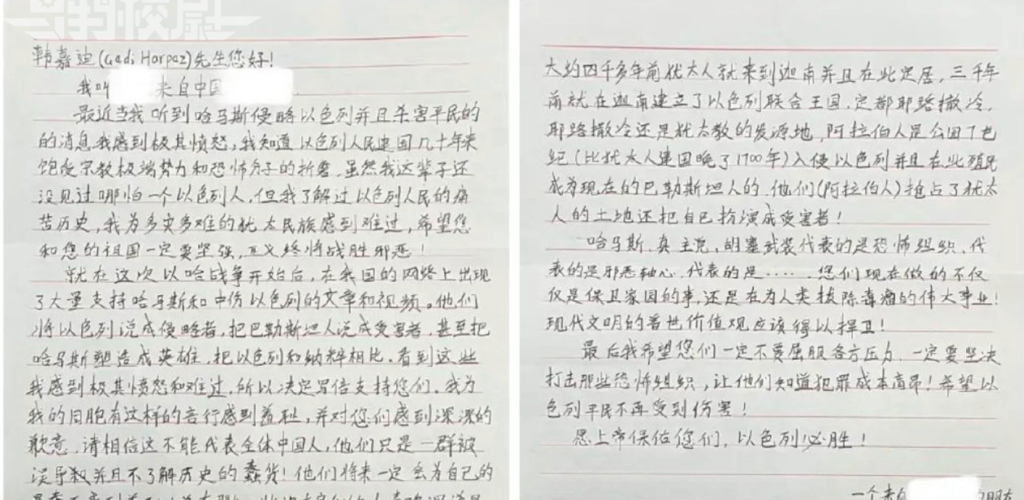 韩嘉迪(Gadi Harpaz)先生您好!
我叫 来自中国
最近当我听到哈马斯侵略以色列并且杀害平民的
的消息我感到极其愤怒,我知道以色列人民建国几十年来
饱受宗教极端势力和恐怖分子的折磨,虽然我这辈子还
没见过哪怕一个以色列人,但我了解过以色列人民的痛
苦历史,我为多灾多难的犹太民族感到难过,希望您
和您的祖国一定要坚强,正义终将战胜邪恶!
就在这次以哈战争开始后,在我国的网络上出现
了大量支持哈马斯和中伤以色列的文章和视频。他们
将以色列说成侵略者,把巴勒斯坦人说成受害者,甚至把
哈马斯塑造成英雄,把以色列和纳粹相比,看到这些
我感到极其愤怒和难过,所以决定写信支持您们,我为
我的同胞有这样的言行感到羞耻,并对您们感到深深的
歉意,请相信这不能代表全体中国人,他们只是一群被
误导教并且不了解历史的蠢货!他们将来一定会为自己的
大约四千多年前犹太人就来到迦南并且在此定居,三千年
前就在迦南建立了以色列联合王国,定都耶路撒冷,
耶路撒冷还是犹太教的发源地,阿拉伯人是公园7世
纪(比犹太人建国晚了1700年)入侵以色列并且在此殖民
成为现在的巴勒斯坦人的,他们(阿拉伯人)抢占了犹太
人的土地还把自己扮演成受害者!
哈马斯,真主党,胡塞武装代表的是恐怖组织,代
表的是邪恶轴心,代表的是……,您们现在做的不仅
仅是保卫家园的事,还是在为人类拔除毒瘤的伟大事业!
现代文明的普世价值观应该得以捍卫!
最后我希望您们一定不要屈服各方压力,一定要坚决
打击那些恐怖组织,让他们知道犯罪成本高昂!希望以
色列平民不再受到伤害!
愿上帝保佑您们,以色列必胜!
一个来自